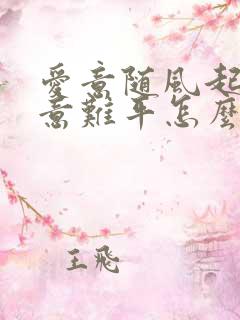 愛意随風起
意難平怎麼
王飛